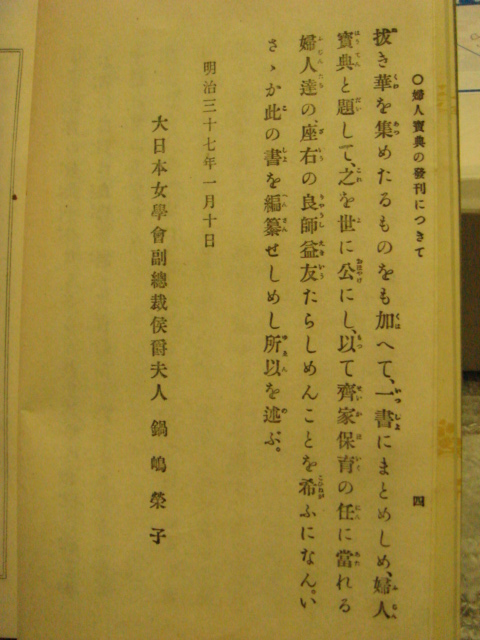 ○婦人寶典の發刊につきて
四
拔き華を集めたるものをも加へて、一書にまとめしめ、婦人
寶典と題して、之を世に公にし、以て齊家保育の任に當れる
婦人達の、座右の良師益友たらしめんことを希ふになん。い
さゝか此の書を編纂せしめし所以を述ぶ。
明治三十七年一月十日
大日本女學會副總裁侯爵夫人 鍋嶋榮子